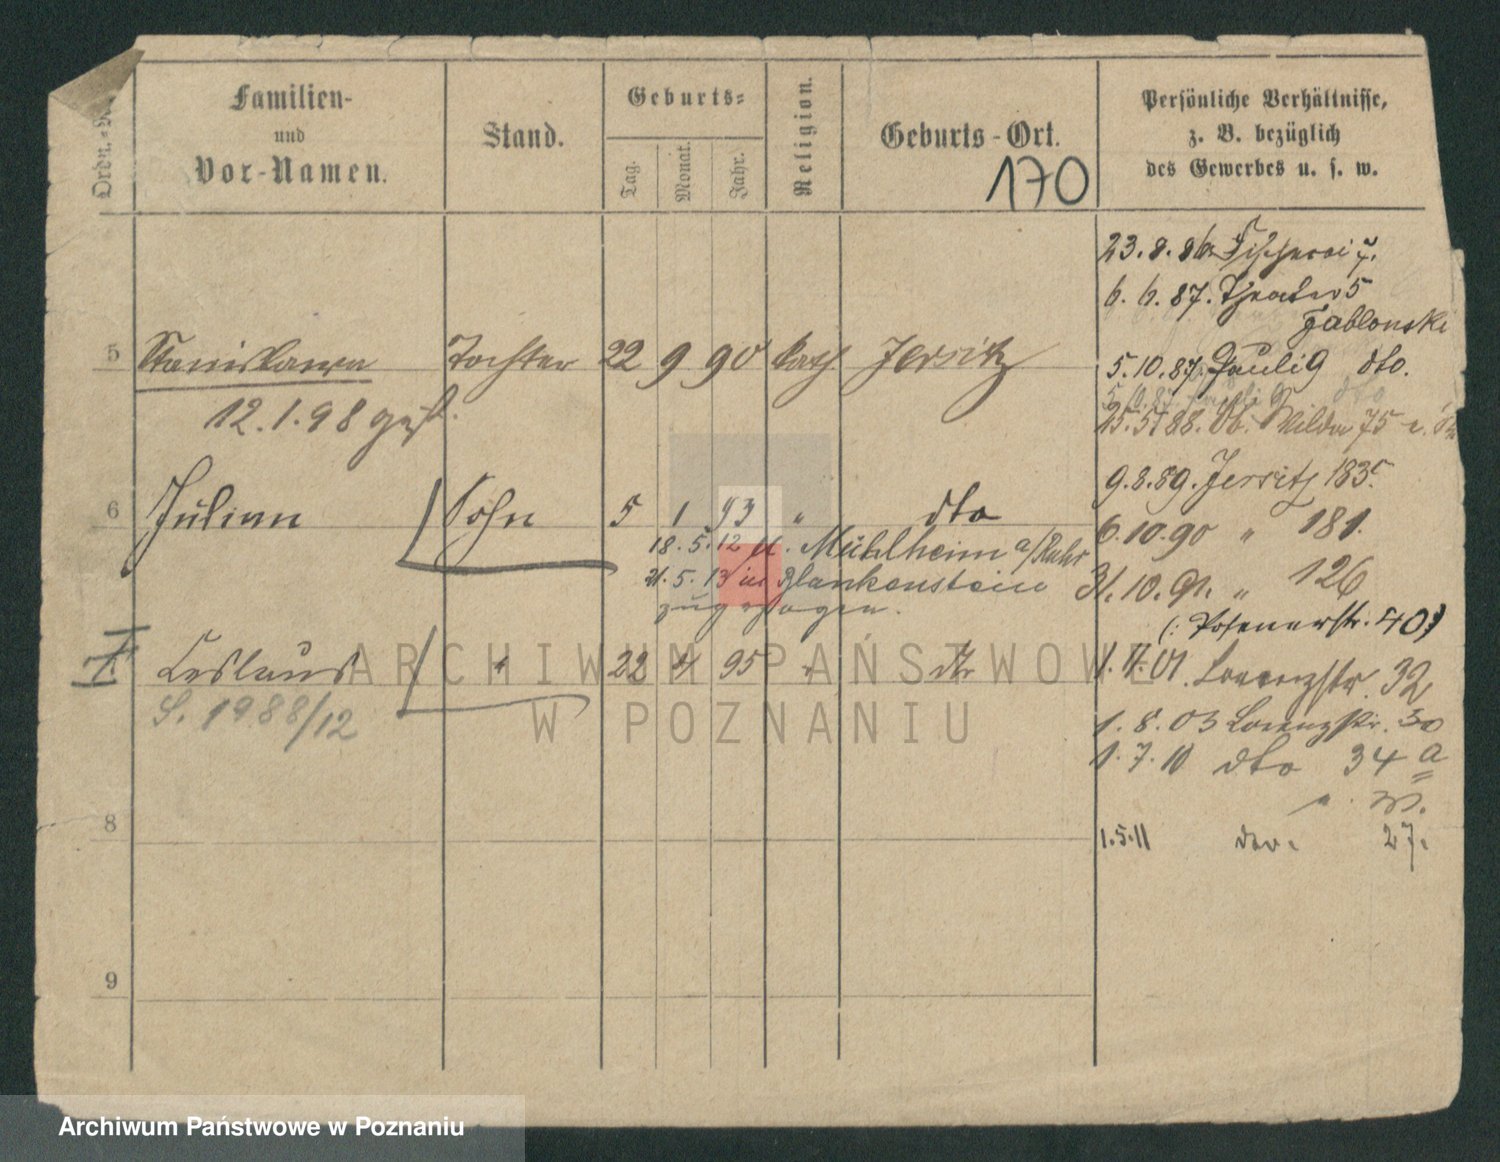 Ordn.-
Familien-
und
Vor-Namen.
Stand.
Geburts-
Tag.
Monat.
Jahr.
Religion.
Geburts-Ort.
170
Persönliche Verhältnisse,
z. B. bezüglich
des Gewerbes u. s. w.
23.8.86 Fischerei 7.
6. 6. 87. Theater 5
Jablonski
5 Stanislawa Tochter 22 9 90 kath Jersitz
5.10.87. Paulig dto.
12.1.98 gest.
25.5.88. Wilda 75
9.8.89. Jersitz 183
6 Julian Sohn 5 1 93 " dto
6.10.90 " 181.
18.5.12 Mühlheim a/Ruhr
21.5.13 in Blankenstein
zugezogen.
31.10.91. " 126
(: Posenerstr. 40 :)
7. Ceslaus " 22 4 95 " dto
1.11.01. Lorenzstr. 32
S. 1988/12
1.8.03 Lorenzstr. 30
1.7.10 dto 34 a
8
1.5.11 27.
9
ARCHIWUM PAŃSTWOWE
W POZNANIU
Archiwum Państwowe w Poznaniu